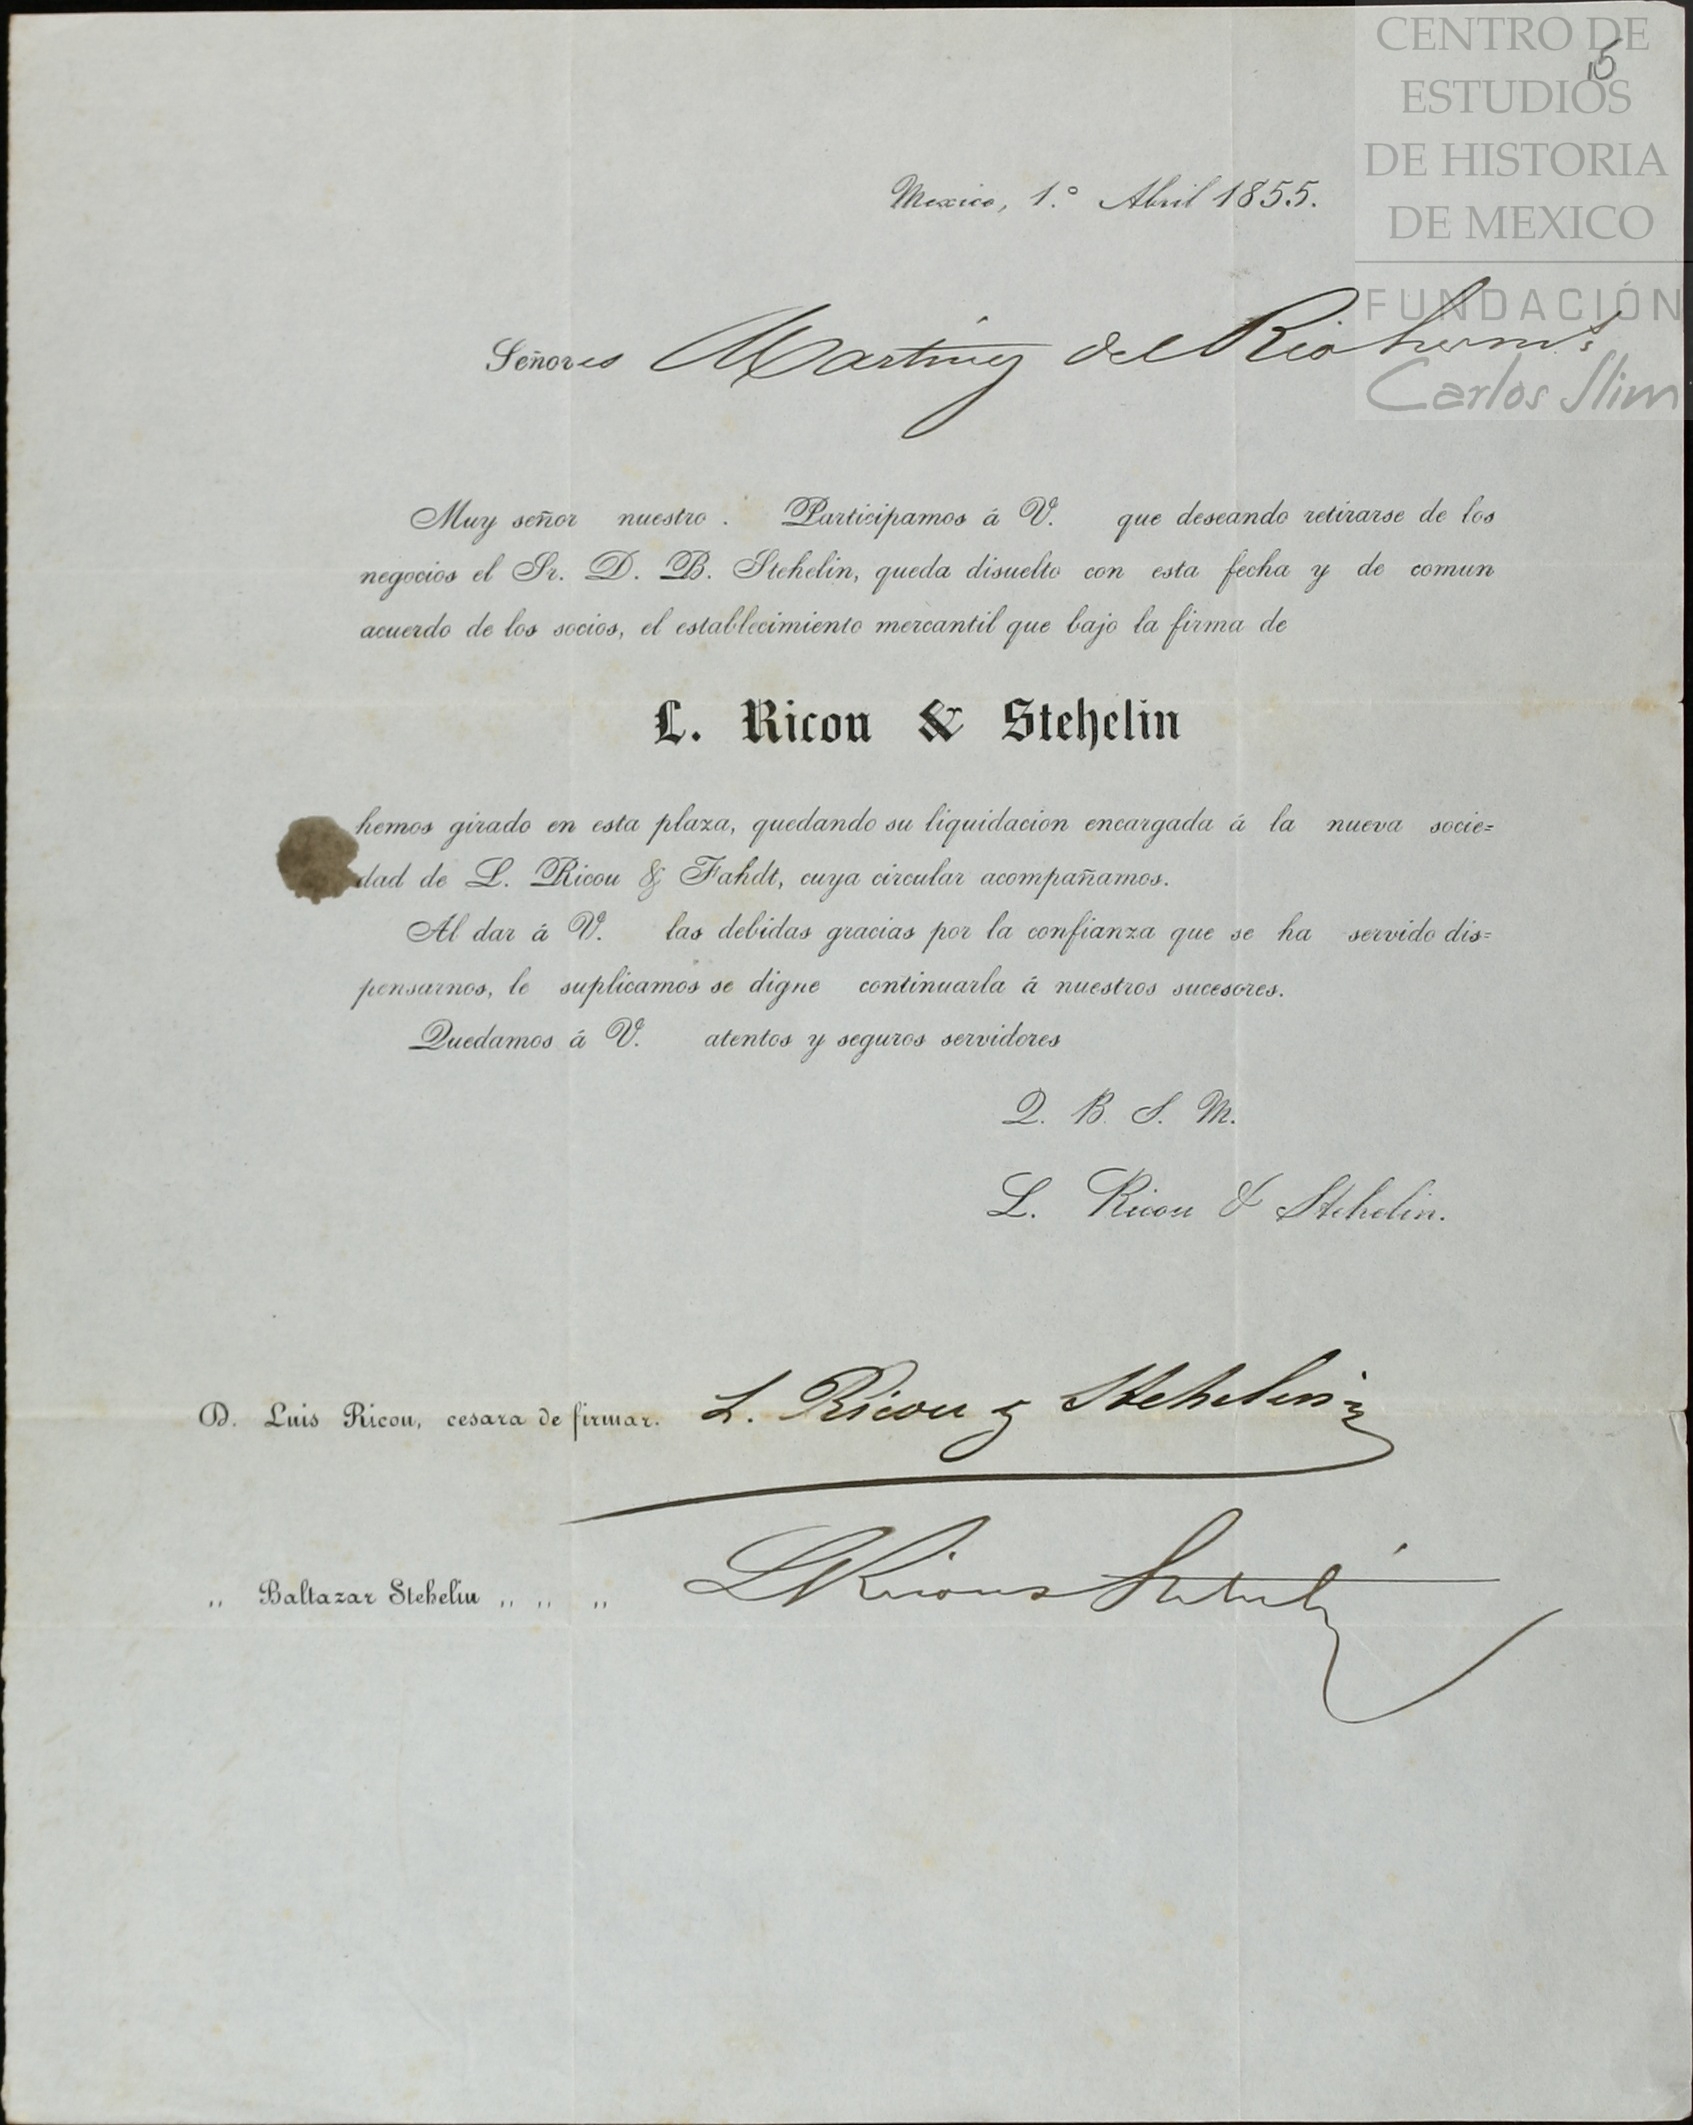 CENTRO DE
ESTUDIOS
DE HISTORIA
DE MEXICO
FUNDACIÓN
Carlos Slim
15
Mexico, 1.° Abril 1855.
Señores Martinez del Rio herm.s
Muy señor nuestro. Participamos á V. que deseando retirarse de los
negocios el Sr. D. B. Stehelin, queda disuelto con esta fecha y de comun
acuerdo de los socios, el establecimiento mercantil que bajo la firma de
L. Ricou & Stehelin
hemos girado en esta plaza, quedando su liquidacion encargada á la nueva socie=
dad de L. Ricou & Fahdt, cuya circular acompañamos.
Al dar á V. las debidas gracias por la confianza que se ha servido dis=
pensarnos, le suplicamos se digne continuarla á nuestros sucesores.
Quedamos á V. atentos y seguros servidores
Q. B. S. M.
L. Ricou & Stehelin.
D. Luis Ricou, cesara de firmar. L. Ricou y Stehelin
„ Baltazar Stehelin „ „ „ L Ricou & Stehelin